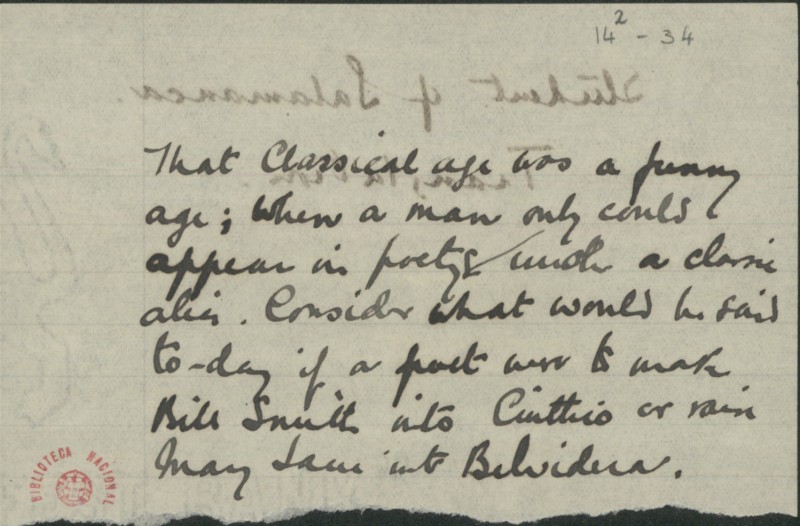 14² - 34
Student of Salamanca.
Translation.
That Classical age was a funny
age; when a man only could
appear in poetry under a classic
alias. Consider what would be said
to-day if a poet were to make
Bill Smith into Cinthio or
Mary Jane into Belvidera.
BIBLIOTECA NACIONAL